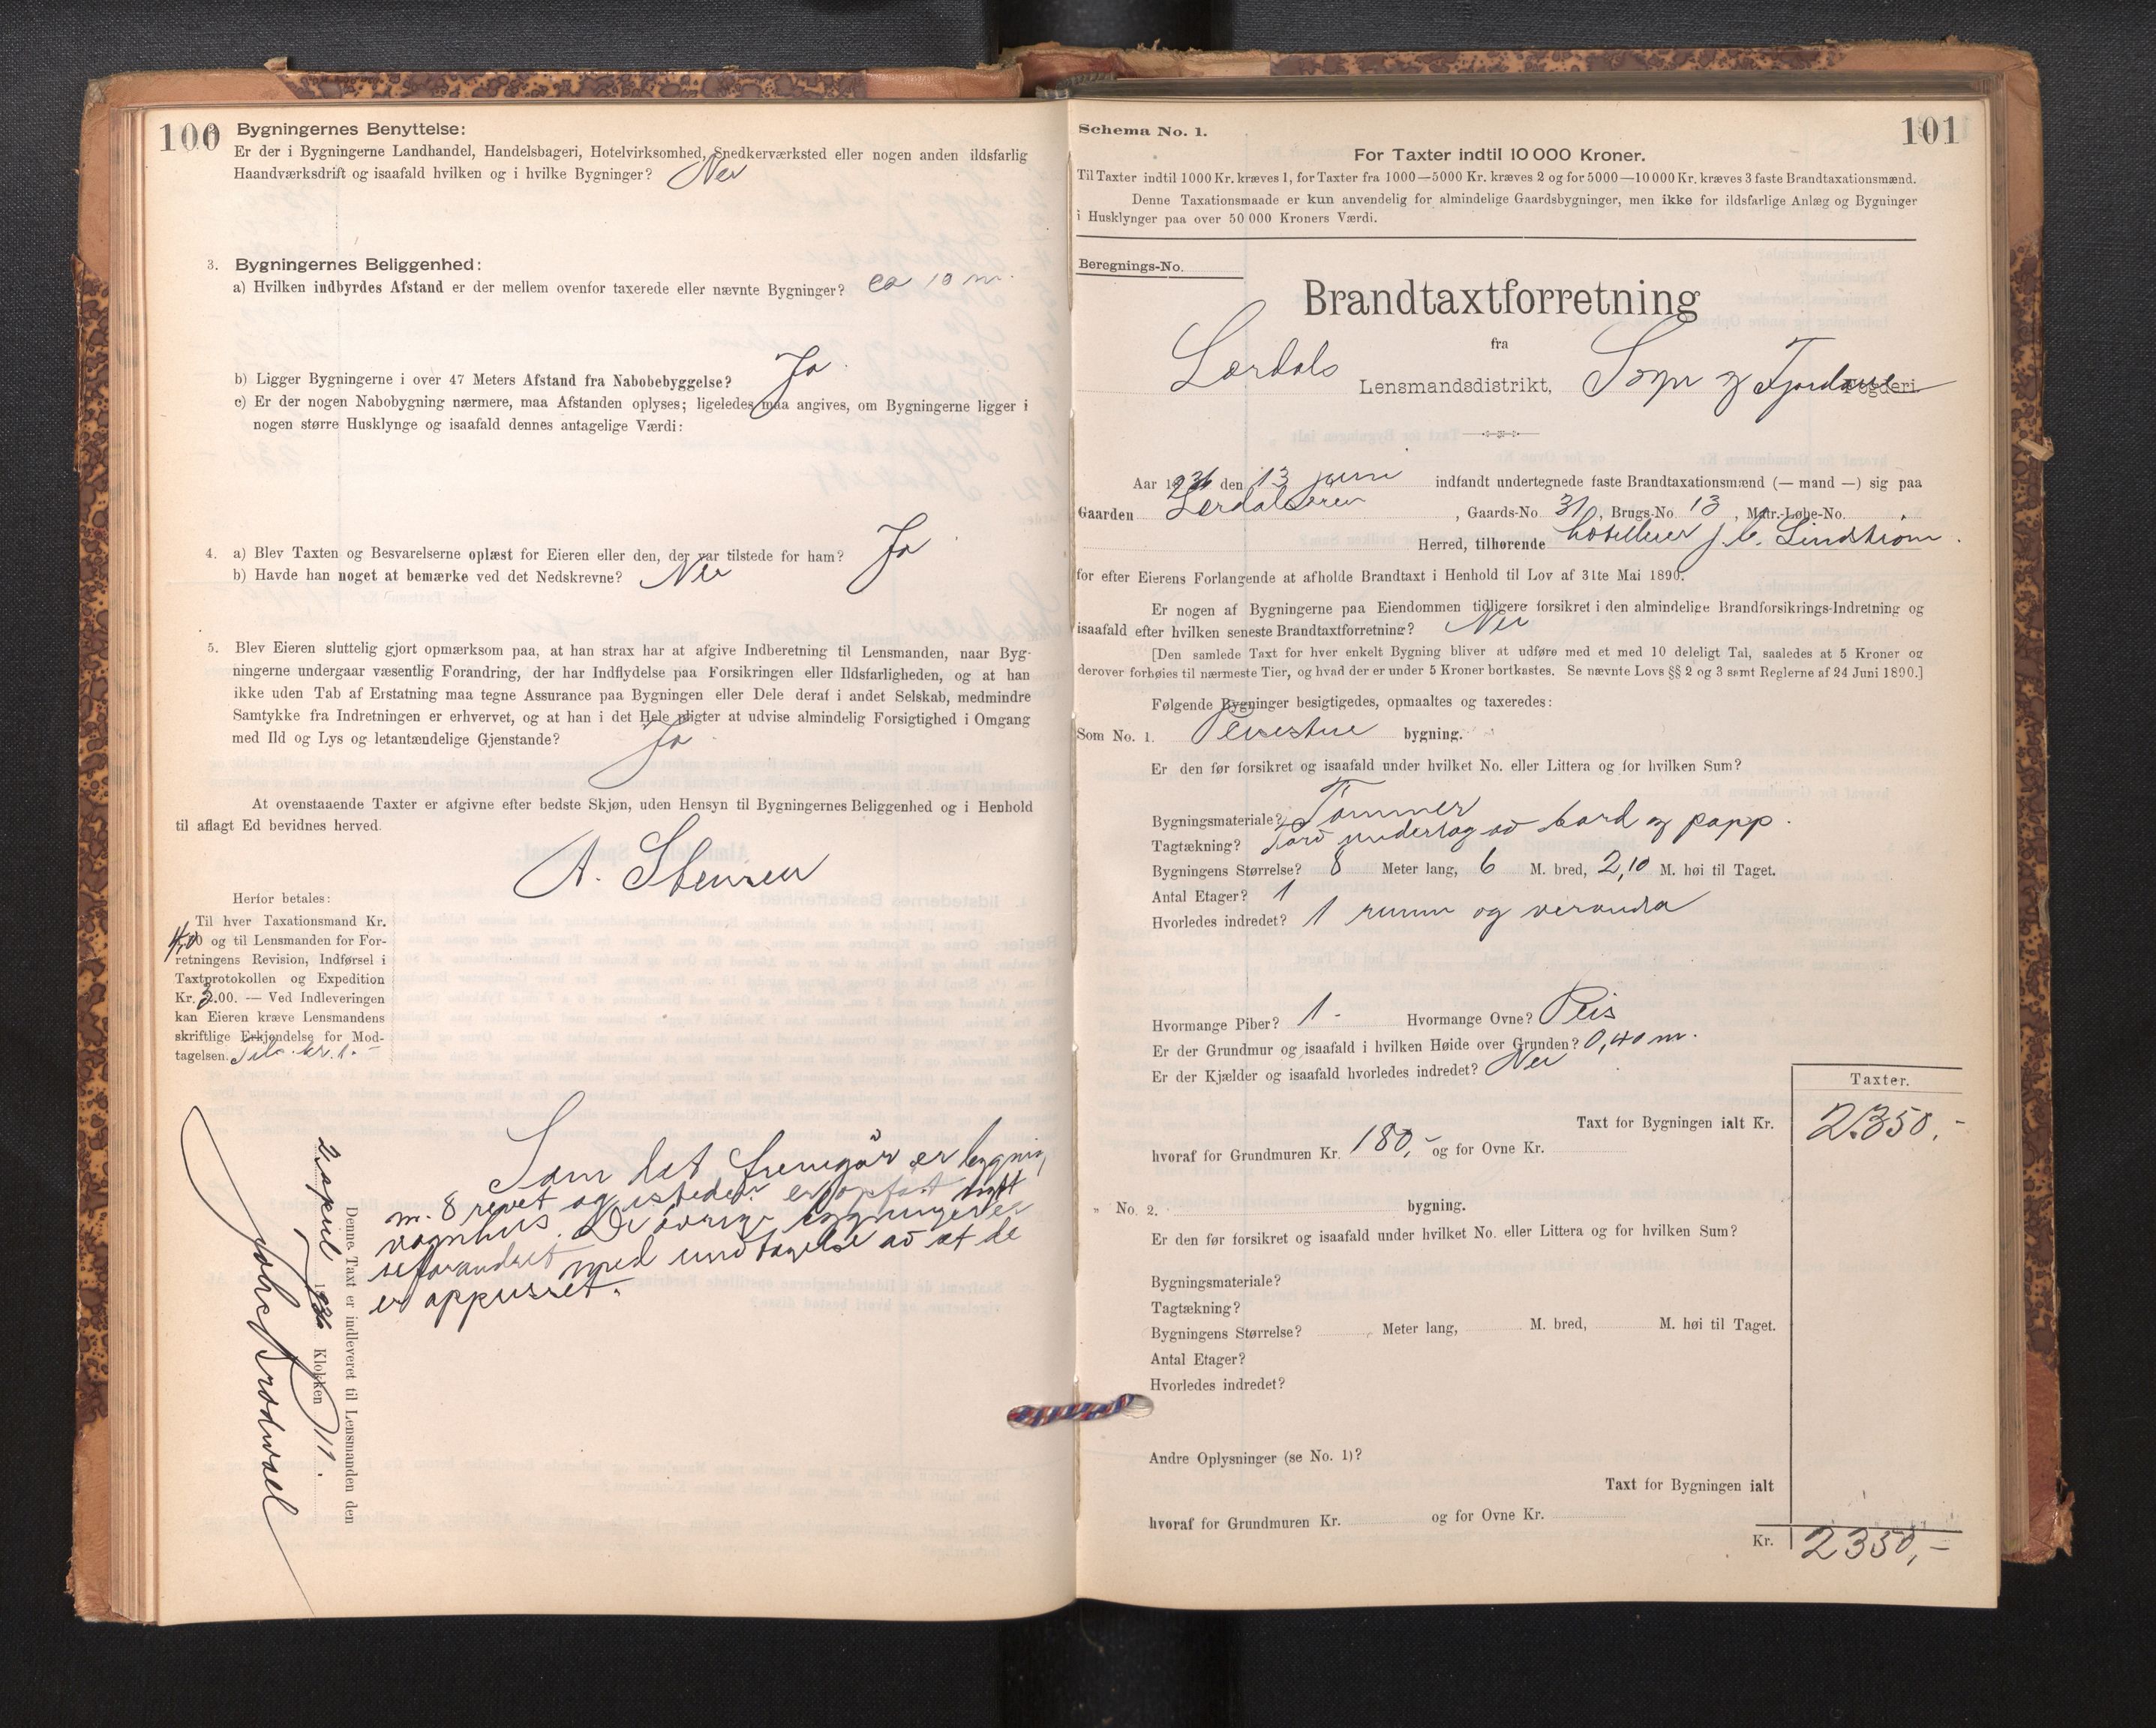 100
2. Bygningernes Benyttelse:
Er der i Bygningerne Landhandel, Handelsbageri, Hotelvirksomhed, Snedkerværksted eller nogen anden ildsfarlig
Haandværksdrift og isaafald hvilken og i hvilke Bygninger? Nei
3. Bygningernes Beliggenhed:
a) Hvilken indbyrdes Afstand er der mellem ovenfor taxerede eller nævnte Bygninger? ca 10 m.
b) Ligger Bygningerne i over 47 Meters Afstand fra Nabobebyggelse? Ja.
c) Er der nogen Nabobygning nærmere, maa Afstanden oplyses; ligeledes maa angives, om Bygningerne ligger i
nogen større Husklynge og isaafald dennes antagelige Værdi:
4. a) Blev Taxten og Besvarelserne oplæst for Eieren eller den, der var tilstede for ham? Ja
b) Havde han noget at bemærke ved det Nedskrevne? Nei
5. Blev Eieren sluttelig gjort opmærksom paa, at han strax har at afgive Indberetning til Lensmanden, naar Byg-
ningerne undergaar væsentlig Forandring, der har Indflydelse paa Forsikringen eller Ildsfarligheden, og at han
ikke uden Tab af Erstatning maa tegne Assurance paa Bygningen eller Dele deraf i andet Selskab, medmindre
Samtykke fra Indretningen er erhvervet, og at han i det Hele pligter at udvise almindelig Forsigtighed i Omgang
med Ild og Lys og letantændelige Gjenstande? Ja
At ovenstaaende Taxter er afgivne efter bedste Skjøn, uden Hensyn til Bygningernes Beliggenhed og i Henhold
til aflagt Ed bevidnes herved.
A. Stensen
Herfor betales:
Til hver Taxationsmand Kr.
4,00 og til Lensmanden for For-
retningens Revision, Indførsel i
Taxtprotokollen og Expedition
Kr. 3.00. — Ved Indleveringen
kan Eieren kræve Lensmandens
skriftlige Erkjendelse for Mod-
tagelsen. kr. 1.-
Som det fremgår er bygning
nr. 8 revet og istedet er opført nytt
vognhus. De övrige bygninger er
uforandret med undtagelse av at de
er oppusset.
Denne Taxt er indleveret til Lensmanden den
2. april 1936 Klokken 11.
101
Schema No. 1.
For Taxter indtil 10 000 Kroner.
Til Taxter indtil 1000 Kr. kræves 1, for Taxter fra 1000—5000 Kr. kræves 2 og for 5000—10 000 Kr. kræves 3 faste Brandtaxationsmænd.
Denne Taxationsmaade er kun anvendelig for almindelige Gaardsbygninger, men ikke for ildsfarlige Anlæg og Bygninger
i Husklynger paa over 50 000 Kroners Værdi.
Beregnings-No.
Brandtaxtforretning
fra
Lærdals Lensmandsdistrikt, Sogn og Fjordane Fogderi.
Aar 1936 den 13 juni indfandt undertegnede faste Brandtaxationsmænd (— mand —) sig paa
Gaarden Lærdalsøren, Gaards-No 31, Brugs-No 13, Matr.-Løbe-No.
Herred, tilhørende hotelleier J. C. Lindstrøm.
for efter Eierens Forlangende at afholde Brandtaxt i Henhold til Lov af 31te Mai 1890.
Er nogen af Bygningerne paa Eiendommen tidligere forsikret i den almindelige Brandforsikrings-Indretning og
isaafald efter hvilken seneste Brandtaxtforretning? Nei
[Den samlede Taxt for hver enkelt Bygning bliver at udføre med et med 10 deleligt Tal, saaledes at 5 Kroner og
derover forhøies til nærmeste Tier, og hvad der er under 5 Kroner bortkastes. Se nævnte Lovs §§ 2 og 3 samt Reglerne af 24 Juni 1890.]
Følgende Bygninger besigtigedes, opmaaltes og taxeredes:
Som No. 1. Peisestue bygning.
Er den før forsikret og isaafald under hvilket No. eller Littera og for hvilken Sum?
Bygningsmateriale? Tømmer
Tagtækning? Torv underlag av bord og papp.
Bygningens Størrelse? 8 Meter lang, 6 M. bred, 2,10 M. høi til Taget.
Antal Etager? 1
Hvorledes indredet? 1 rumm og veranda
Hvormange Piber? 1.- Hvormange Ovne? Peis
Er der Grundmur og isaafald i hvilken Høide over Grunden? 0,40 m.
Er der Kjælder og isaafald hvorledes indredet? Nei
Taxter.
Taxt for Bygningen ialt Kr. 2.350,-
hvoraf for Grundmuren Kr. 180,- og for Ovne Kr.
„ No. 2. bygning.
Er den før forsikret og isaafald under hvilket No. eller Littera og for hvilken Sum?
Bygningsmateriale?
Tagtækning?
Bygningens Størrelse? Meter lang, M. bred, M. høi til Taget.
Antal Etager?
Hvorledes indredet?
Andre Oplysninger (se No. 1)?
Taxt for Bygningen ialt
hvoraf for Grundmuren Kr. og for Ovne Kr.
Kr. 2350,-